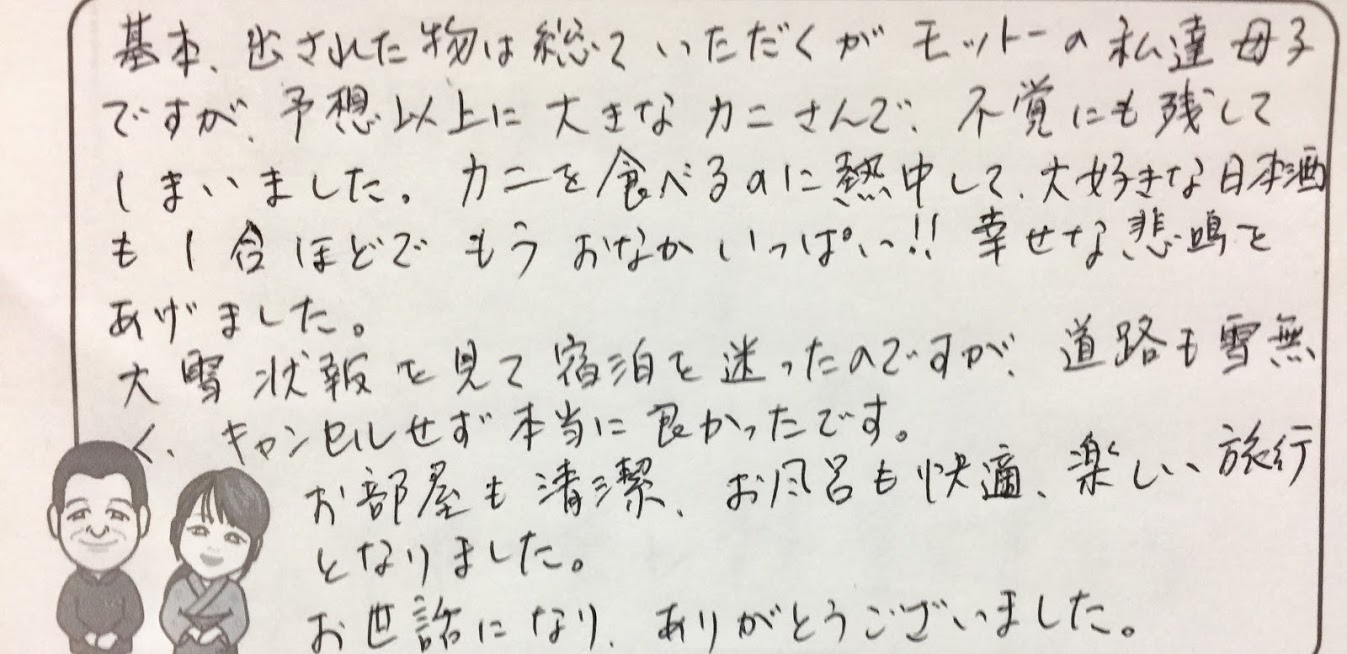 基本、出された物は総ていただくがモットーの私達母子
ですが、予想以上に大きなカニさんで、不覚にも残して
しまいました。カニを食べるのに熱中して、大好きな日本酒
も1合ほどでもうおなかいっぱい!!幸せな悲鳴を
あげました。
大雪状報を見て宿泊を迷ったのですが、道路も雪無
く、キャンセルせず本当に良かったです。
お部屋も清潔、お風呂も快適、楽しい旅行
となりました。
お世話になり、ありがとうございました。